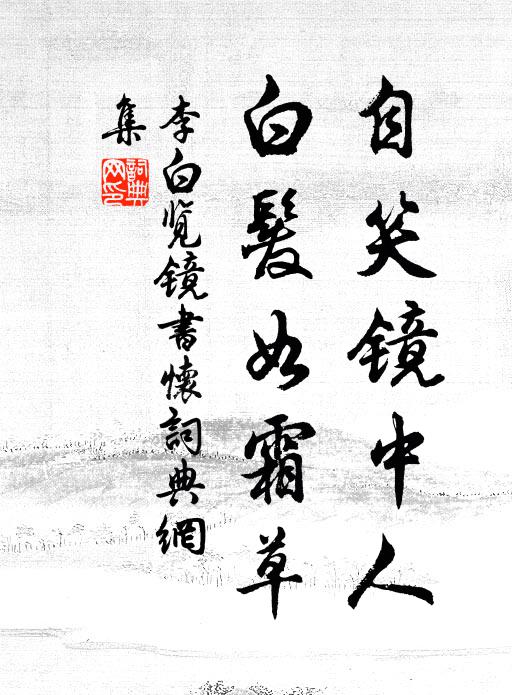 自笑镜中人
白髮如霜草
李白览镜書懷詞典網
集
詞典
网印